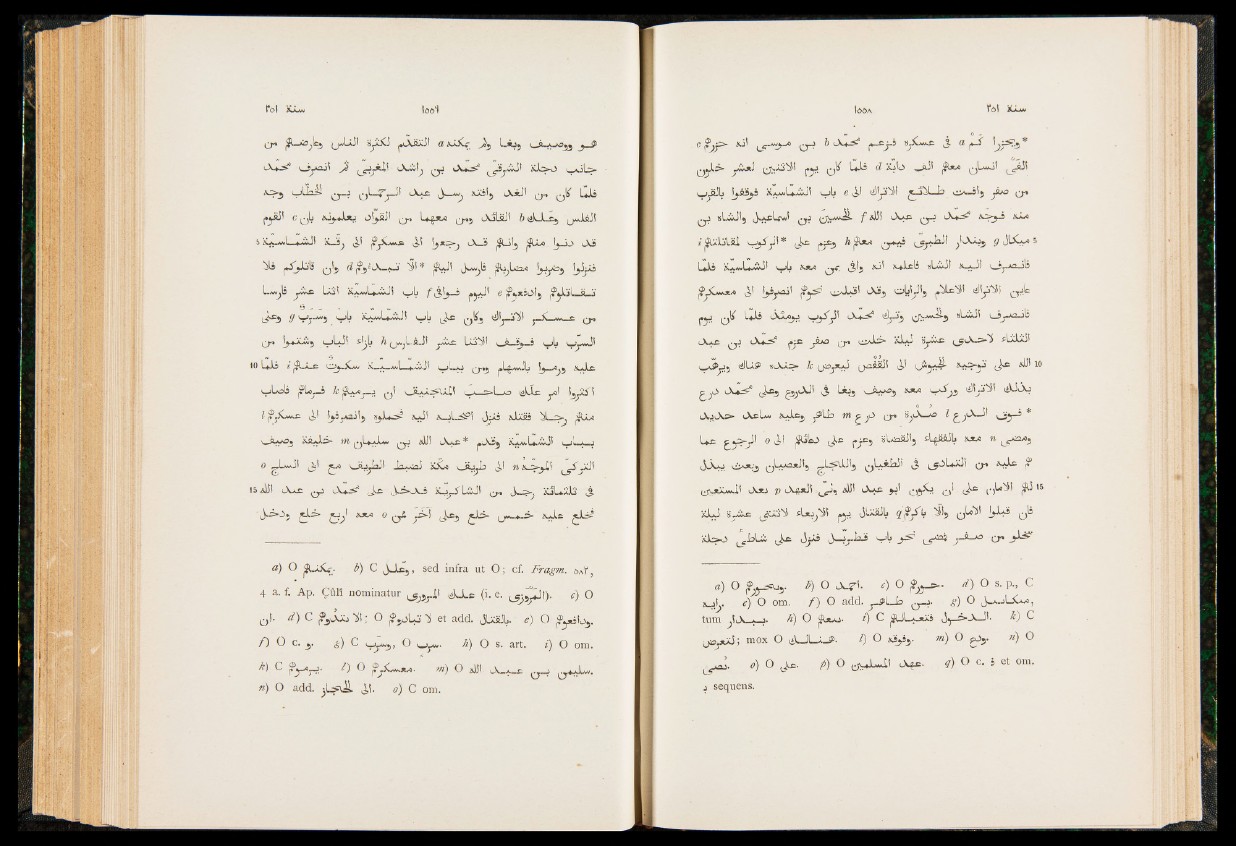 سنة ٢٥١ ١٥٥٨
*ويحزروا كم a في عسكره فزعم محمد b بن موسى انه حزرهم c
الفَىْ انسان معهم الف دابّة d فلمّا كان يوم الاثنين لعشر خلون
من صفر وافت طلائع الاتراك الى e باب الشمّاسيّة فوقفوا بالقرب
منه فوجّه محمد بن عبد الله f الحسين بن اسماعيل والشاه بن
5 ميكال g وبندار الطبرىّ فيمن معهم h وعزم على *الركوب لمقاتلتهم i
فانصرف اليه الشاه فاعلمه انه وافى بمن معه باب الشمّاسيّة فلمّا
عاين الاتراك الاعلام والرايات وقد اقبلت نحوهم انصرفوا الى معسكرهم
فانصرف الشاه والحسين وترك محمد الركوب يومئذ فلمّا كان يوم
الثلثاء لاحدى عشرة ليلة خلت من صفر عزم محمد بن عبد
10 الله على توجيه الجيوش الى القُفْص ليعرض k جنده هناك ويرهّب
بذلك الاتراك وركب معه وصيف وبغا في الدروع وعلى محمد درع
*وفوق الدرع l صدرة من درع m طاهر وعليه ساعد حديد
ومضى n معه بالفقهاء والقضاة وعزم على دعائهم الى o الرجوع عما
هم عليه من التمادى في الطغيان واللجاج والعصيان وبعث يبذل
15 لهم الامان على ان يكون ابو عبد الله ولىّ العهد p بعد المستعين
فان قبلوا الامان والّا باكرهم q بالقتال يوم الاربعاء لاثنتى عشرة ليلة
تخلو من صفر فمضى نحو باب قطربّل فنزل على شاطئ دجلة
a) O b) O احمد. c) O d) O s. p., C
e) O om. f) O add. بن طاهر. g) O
tum h) O معه. i) C k) C
mox O l) O m) O n) O
o) O على. p) O عهد المسلمين. q) O c. et om.
ب sequens.
سنة ٢٥١ ١٥٥٩
هو ووصيف وبغا ولم يمكنه a التقدّم لكثرة الناس وعارضهم من
جانب دجلة الشرقىّ محمد بن راشد المغربىّ ثم انصرف محمد
فلمّا كان من الغد وافته رسل عبد الرحمن بن الخطّاب وجه
الفلس وعلك b القائد ومن معهما من القوّاد يعلمونه بان c القوم
5 قد دنوا منهم وانهم قد رجعوا الى عسكرهم الى رقّة الشمّاسيّة
فنزلوا وضربوا مضاربهم فارسل اليهم *الّا تبدءوهم d وان قاتلوكم فلا
تقاتلوهم وادفعوهم e اليوم فوافى f باب الشمّاسيّة اثنا عشر فارسا
من عسكر الاتراك وكان على باب الشمّاسيّة باب وسَرَب g وعلى
السرب باب فوقف الاثنا عشر الفارس h بازاء الباب وشتموا من
10 عليه ورموا بالسهام ومن بباب الشمّاسيّة سكوت عنهم i فلمّا
اكثروا امر علك صاحب المنجنيق ان يرميهم k فرماهم فاصاب
منهم رجلا فقتله فنزل اصحابه اليه فحملوه وانصرفوا الى عسكرهم l
بباب الشمّاسيّة وقدم *عبد الله بن سليمان m خليفة وصيف
التركىّ الموجّه n الى طريق مكّة لضبط الطريق مع ابى الساج o
15 في ثلثمائة رجل من الشاكريّة فدخل على محمد بن عبد الله
فخلع عليه خمس خلع وعلى آخر ممّن o معه اربع خلع ودخل
a) O يمكنهم. b) C وعلل, sed infra ut O; cf. Fragm. ٥٨٢,
4 a. f. Ap. Çûlî nominatur علك المروزى (i. c. المروّزى). c) O
ان. d) C ; O et add. بالقتال. e) O ودافعوهم.
f) O c. و. g) C وسرب, O سرب. h) O s. art. i) O om.
k) C يرموهم. l) O معسكرهم. m) O سليمن بن عبد الله.
n) O add. الى الحجاز. o) C om.